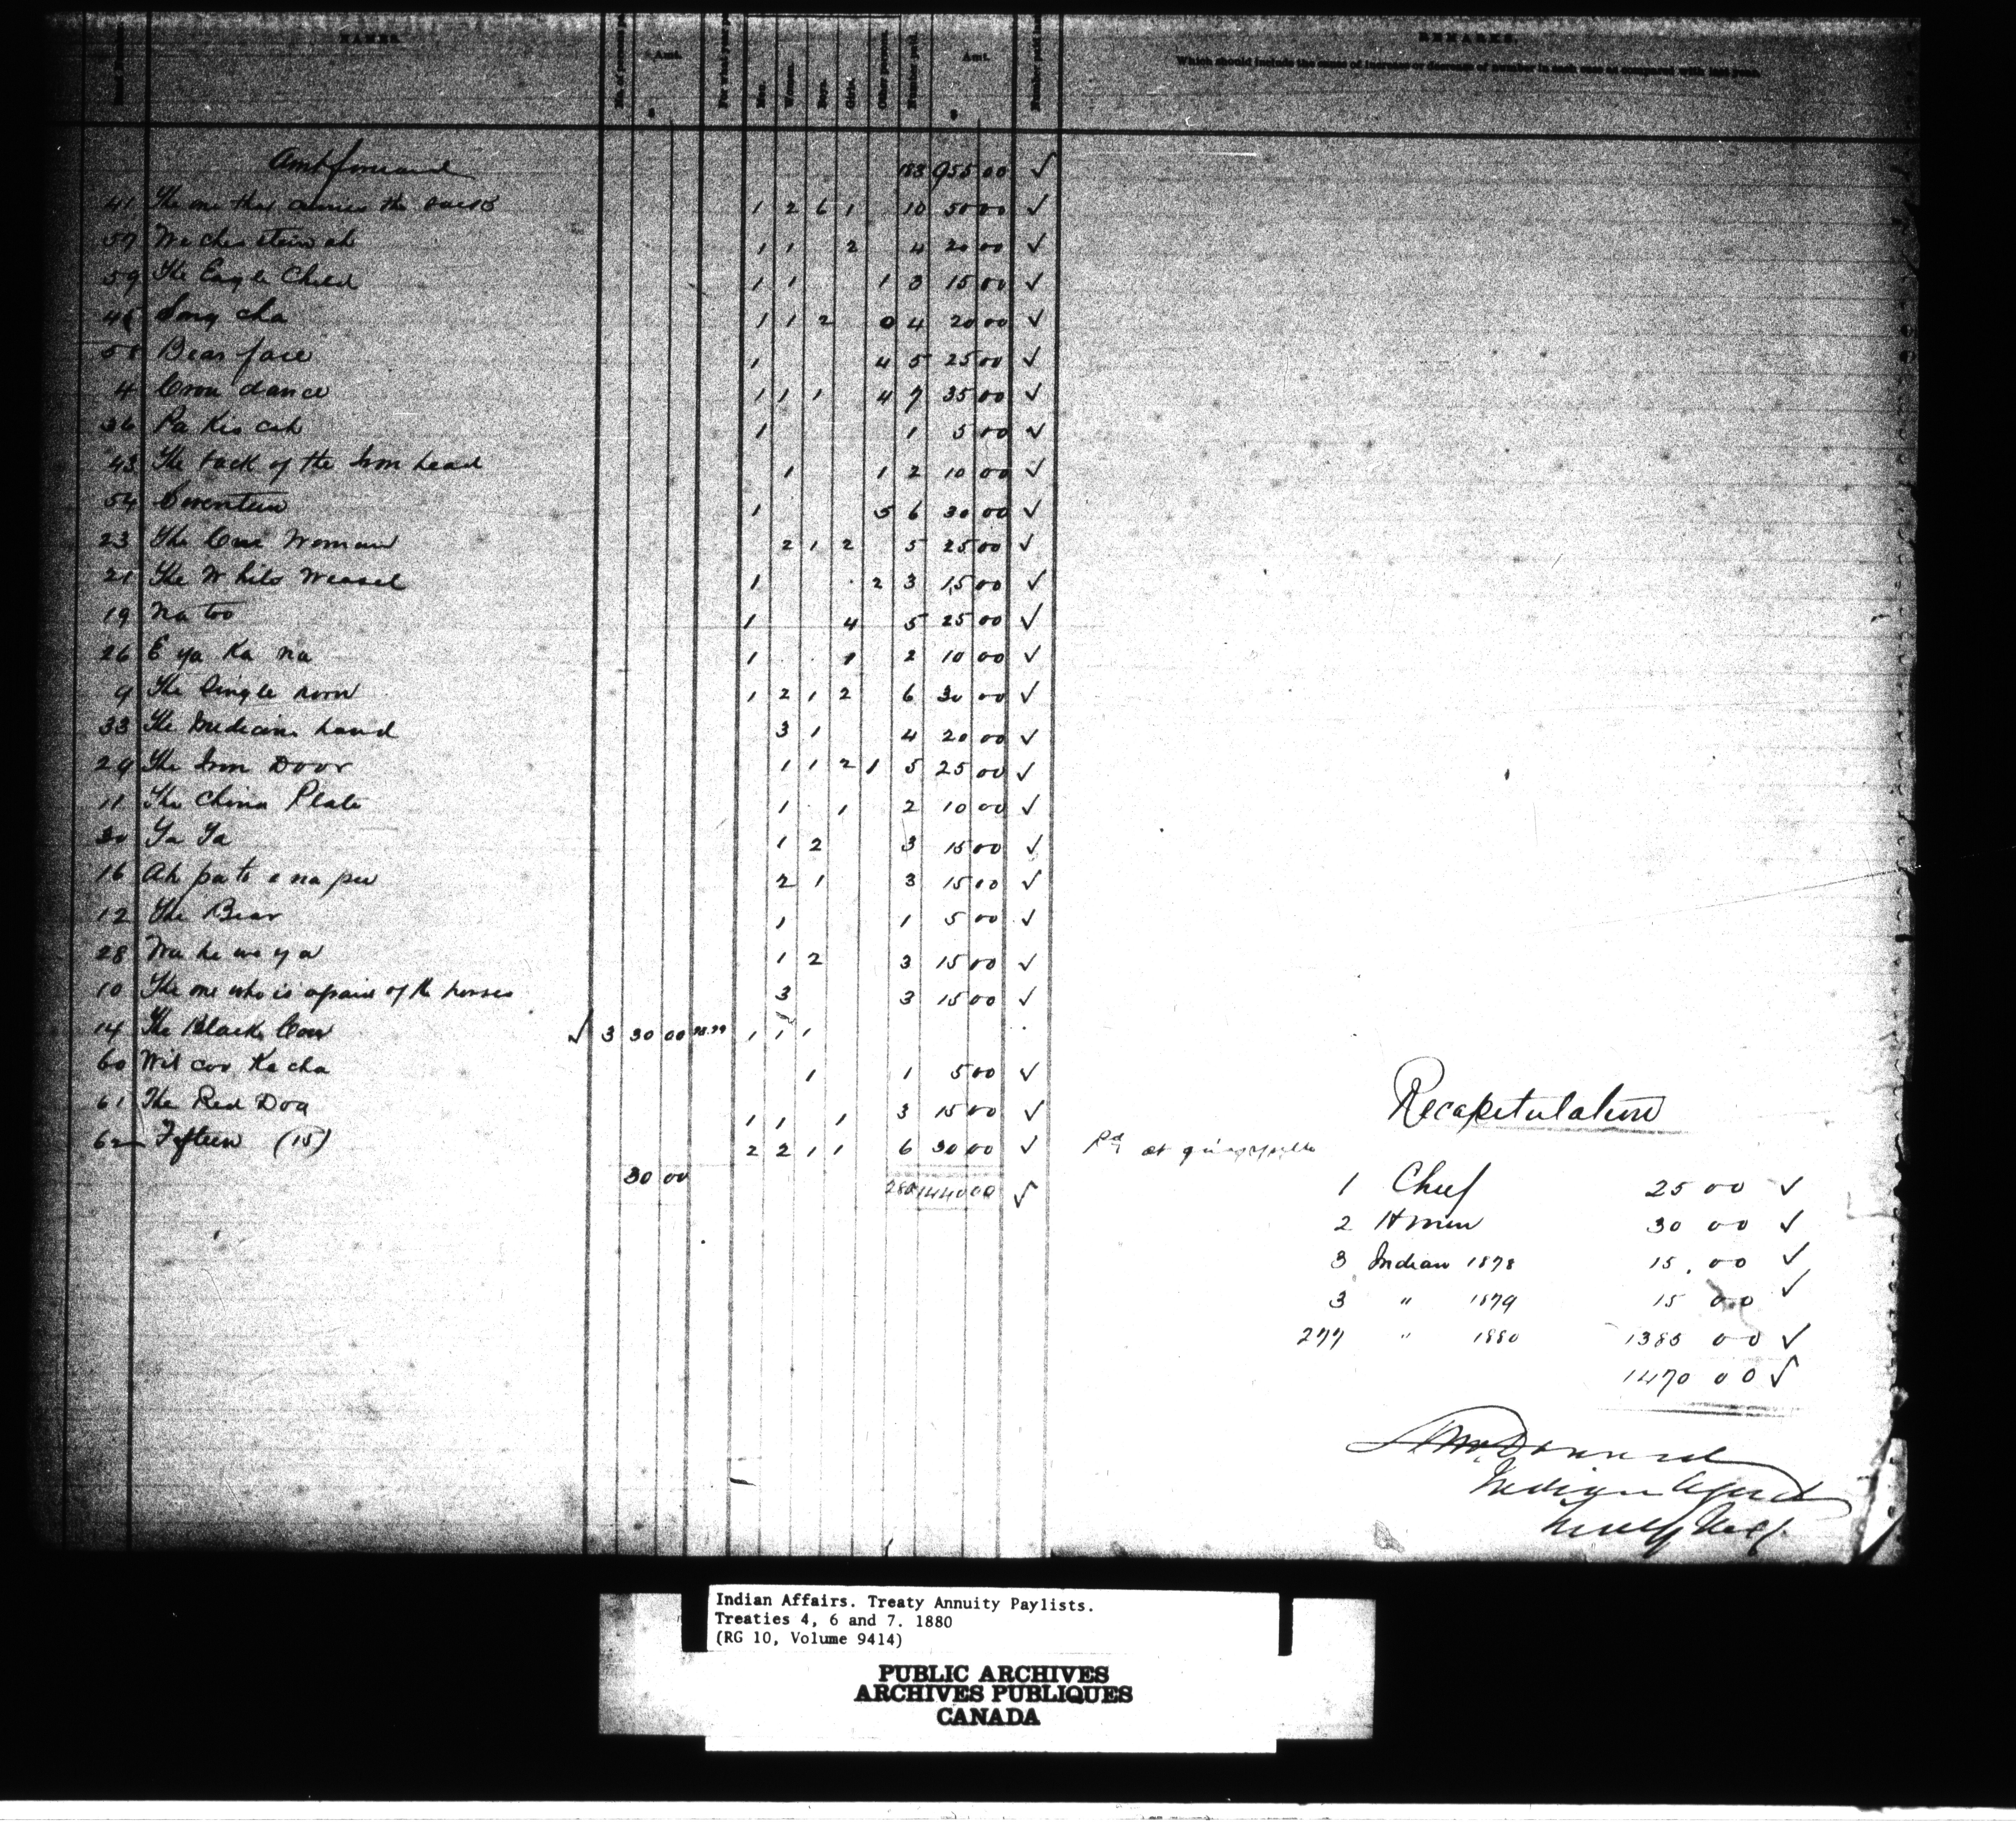 NAMES.
No. of
Amt.
For what year
Men.
Women.
Boys.
Girls.
Other
Number paid.
Amt.
Number paid
REMARKS.
Which should include the cause of increase or decrease of number in each case as compared with last year.
$
$
Amt forward 183 955 00 ✓
41 The one that carries the 1 2 6 1 10 50 00 ✓
57 1 1 2 4 20 00 ✓
59 The Eagle Child 1 1 1 3 15 00 ✓
Song cha 1 1 2 0 4 20 00 ✓
58 Bear face 1 4 5 25 00 ✓
4 Crow dance 1 1 1 4 7 35 00 ✓
36 Pa Kis cah 1 1 5 00 ✓
43 The back of the Iron head 1 1 2 10 00 ✓
54 1 5 6 30 00 ✓
23 The Cree Woman 2 1 2 5 25 00 ✓
21 The White Weasel 1 2 3 15 00 ✓
19 Na too 1 4 5 25 00 ✓
26 E ya Ka na 1 1 2 10 00 ✓
9 The Single horn 1 2 1 2 6 30 00 ✓
33 The Medicine hand 3 1 4 20 00 ✓
29 The Iron Door 1 1 2 1 5 25 00 ✓
11 The China Plate 1 1 2 10 00 ✓
30 Ya Ya 1 2 3 15 00 ✓
16 Ah pa to e na pew 2 1 3 15 00 ✓
12 The Bear 1 1 5 00 ✓
28 Wa he we ya 1 2 3 15 00 ✓
10 The one who is afraid of the horses 3 3 15 00 ✓
14 The Black Cow ✓ 3 30 00 78.79 1 1 1
60 Wit coo Ka cha 1 1 5 00 ✓
61 The Red Dog 1 1 1 3 15 00 ✓
62 Fifteen (15) 2 2 1 1 6 30 00 ✓ Pd at
30 00 280 1440 00 ✓
Recapitulation
1 Chief 25 00 ✓
2 Hmen 30 00 ✓
3 Indian 1878 15.00 ✓
3 " 1879 15 00 ✓
277 " 1880 1385 00 ✓
1470 00 ✓
A McDonald
Indian Agent
Indian Affairs. Treaty Annuity Paylists.
Treaties 4, 6 and 7. 1880
(RG 10, Volume 9414)
PUBLIC ARCHIVES
ARCHIVES PUBLIQUES
CANADA